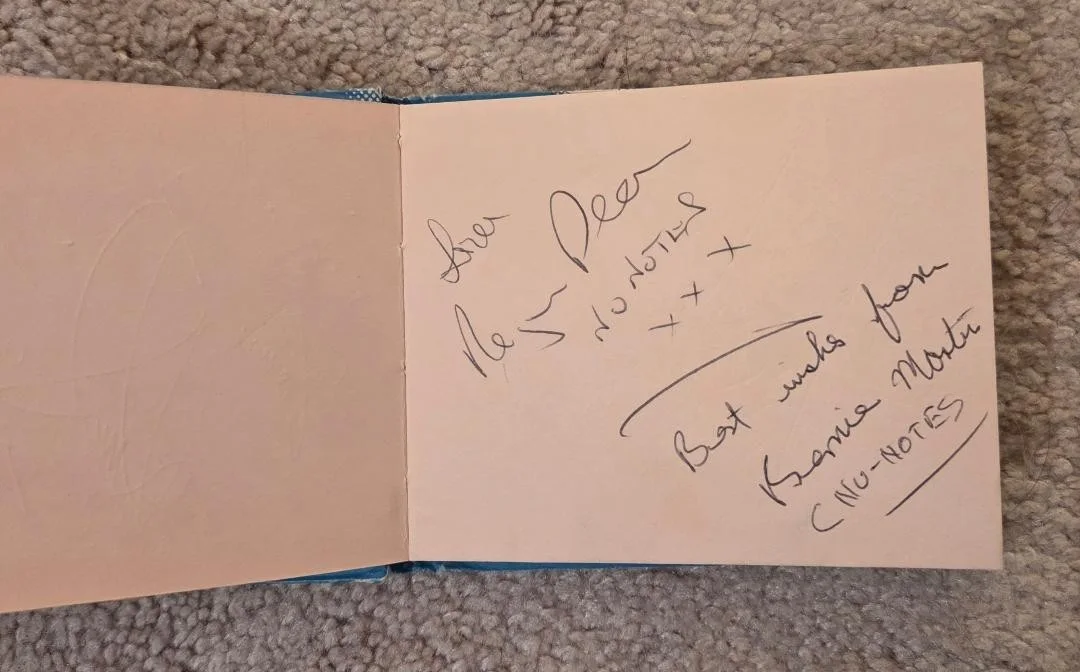 Love
Roger Dean
NU NOTES
x x x
Best wishes from
Bernie Martin
(NU-NOTES